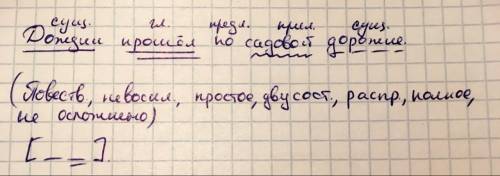 сущ. гл. предл. прил. сущ.
Дождик прошёл по садовой дорожке.
(Повеств, невоскл, простое, двусост., распр, полное,
не осложнено)
[_ _].